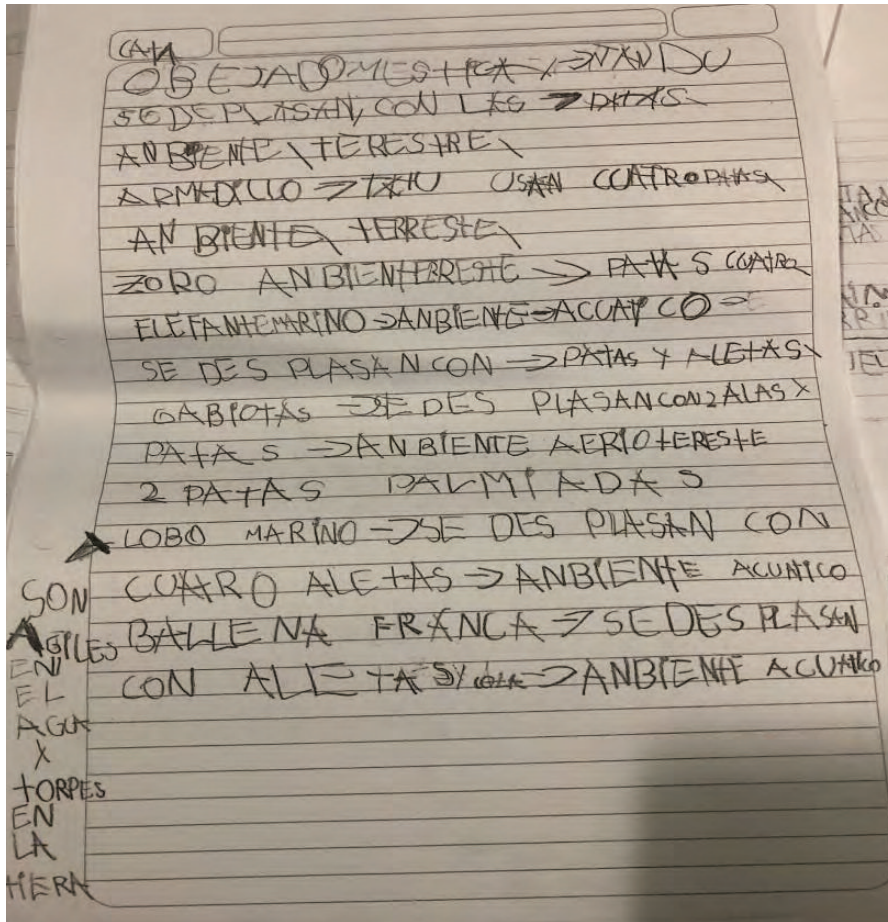 CATA
OBEJA DOMESTICA Y → ÑANDU
SE DEPLASAN, CON LAS → PATAS
ANBIENTE \ TERESTRE \
ARMADILLO → TATU USAN CUATRO PATAS
AN BIENTE \ TERRESTE \
ZORO ANBIENTERRESTE → PATA S CUATRO
ELEFANTEMARINO → ANBIENTE → ACUATICO →
SE DES PLASAN CON → PATAS Y ALETAS Y
GABIOTAS → SE DES PLASANCON 2 ALAS Y
PATAS → ANBIENTE AERIOTERESTE
2 PATAS PALMIADAS
LOBO MARINO → SE DES PLASAN CON
CUATRO ALETAS → ANBIENTE ACUATICO
BALLENA FRANCA → SEDES PLASAN
CON ALETAS Y cola → ANBIENTE ACUATICO
SON
AGILES
EN
EL
AGUA
Y
TORPES
EN
LA
TIERA